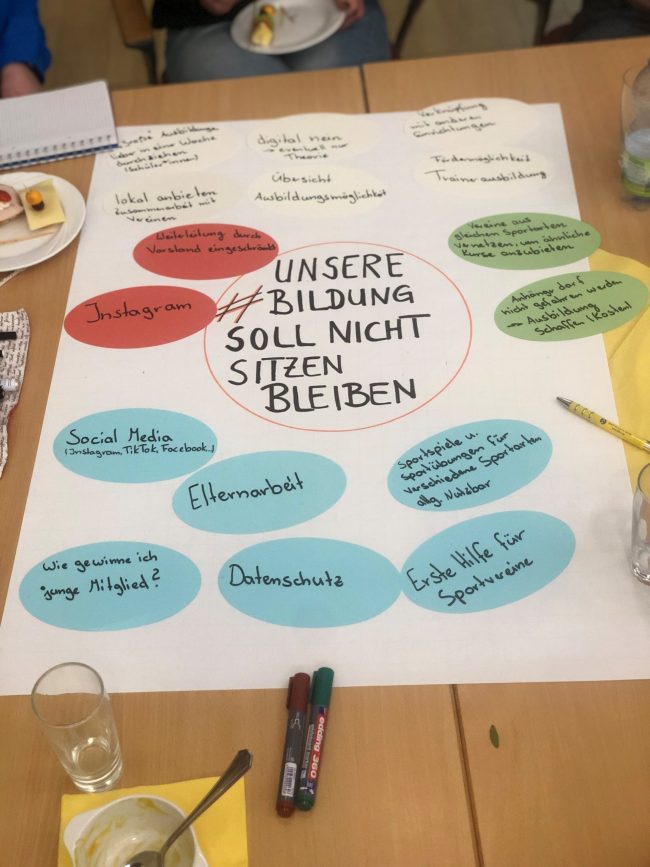 "große" Ausbildungen
lieber in eine Woche
durchziehen
(Schüler*innen)
digital nein
→ eventuell nur
Theorie
Verknüpfung
mit anderen
Einrichtungen
lokal anbieten
Zusammenarbeit mit
Vereinen
Übersicht
Ausbildungsmöglichkeit
Fördermöglichkeit
Trainerausbildung
Weiterleitung durch
Vorstand eingeschränkt
Instagram
Vereine aus
gleichen Sportarten
vernetzen, um ähnliche
Kurse anzubieten
Anhänger darf
nicht gefahren werden
→ Ausbildung
schaffen (Kosten)
UNSERE
#BILDUNG
SOLL NICHT
SITZEN
BLEIBEN
Social Media
(Instagram, TikTok, Facebook...)
Elternarbeit
Sportspiele u.
Sportübungen für
verschiedene Sportarten
allg. Nutzbar
Wie gewinne ich
junge Mitglied?
Datenschutz
Erste Hilfe für
Sportvereine
edding 360